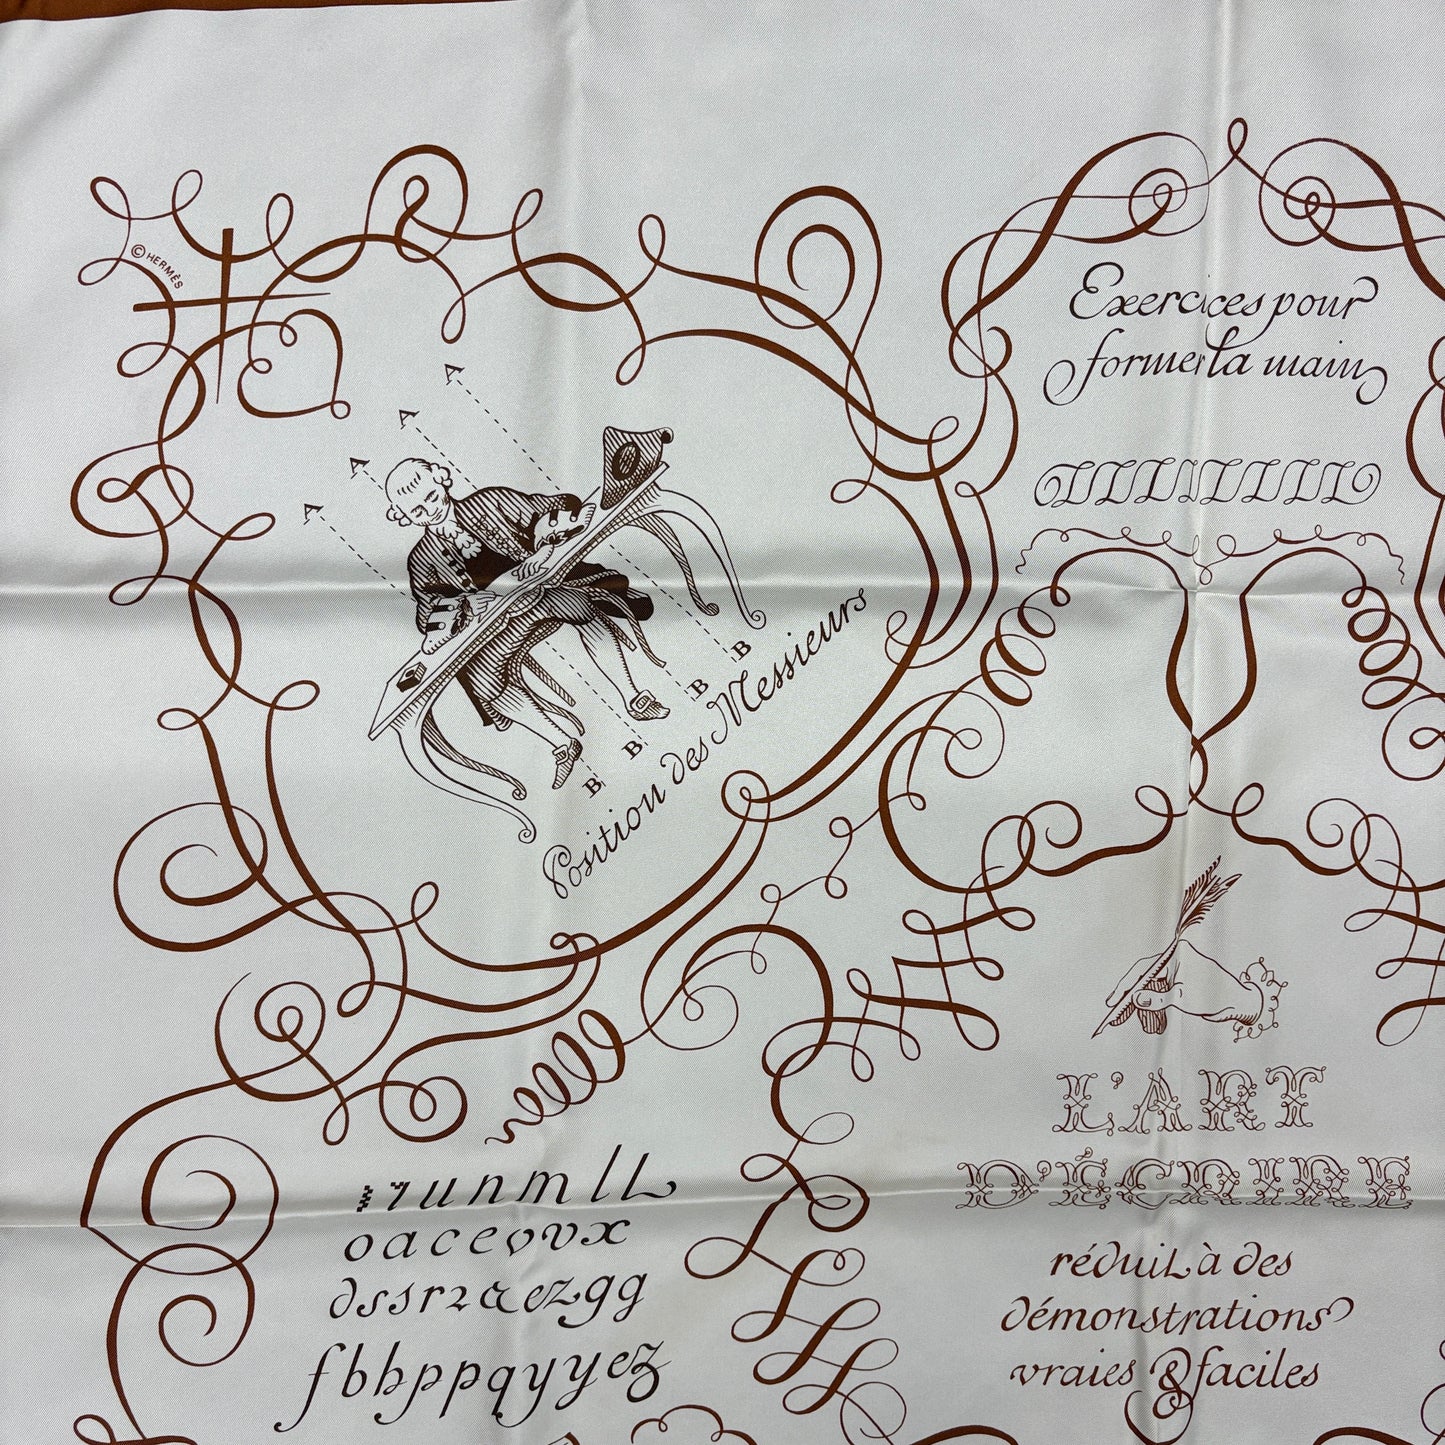 © HERMÈS
Exercices pour
former la main
A
A
A
A
B
B
B
B
Position des Messieurs
L'ART
D'ÉCRIRE
réduit à des
démonstrations
vraies & faciles
ı17unmlL
oaceovvx
dssr2aezgg
fbhppqyyez